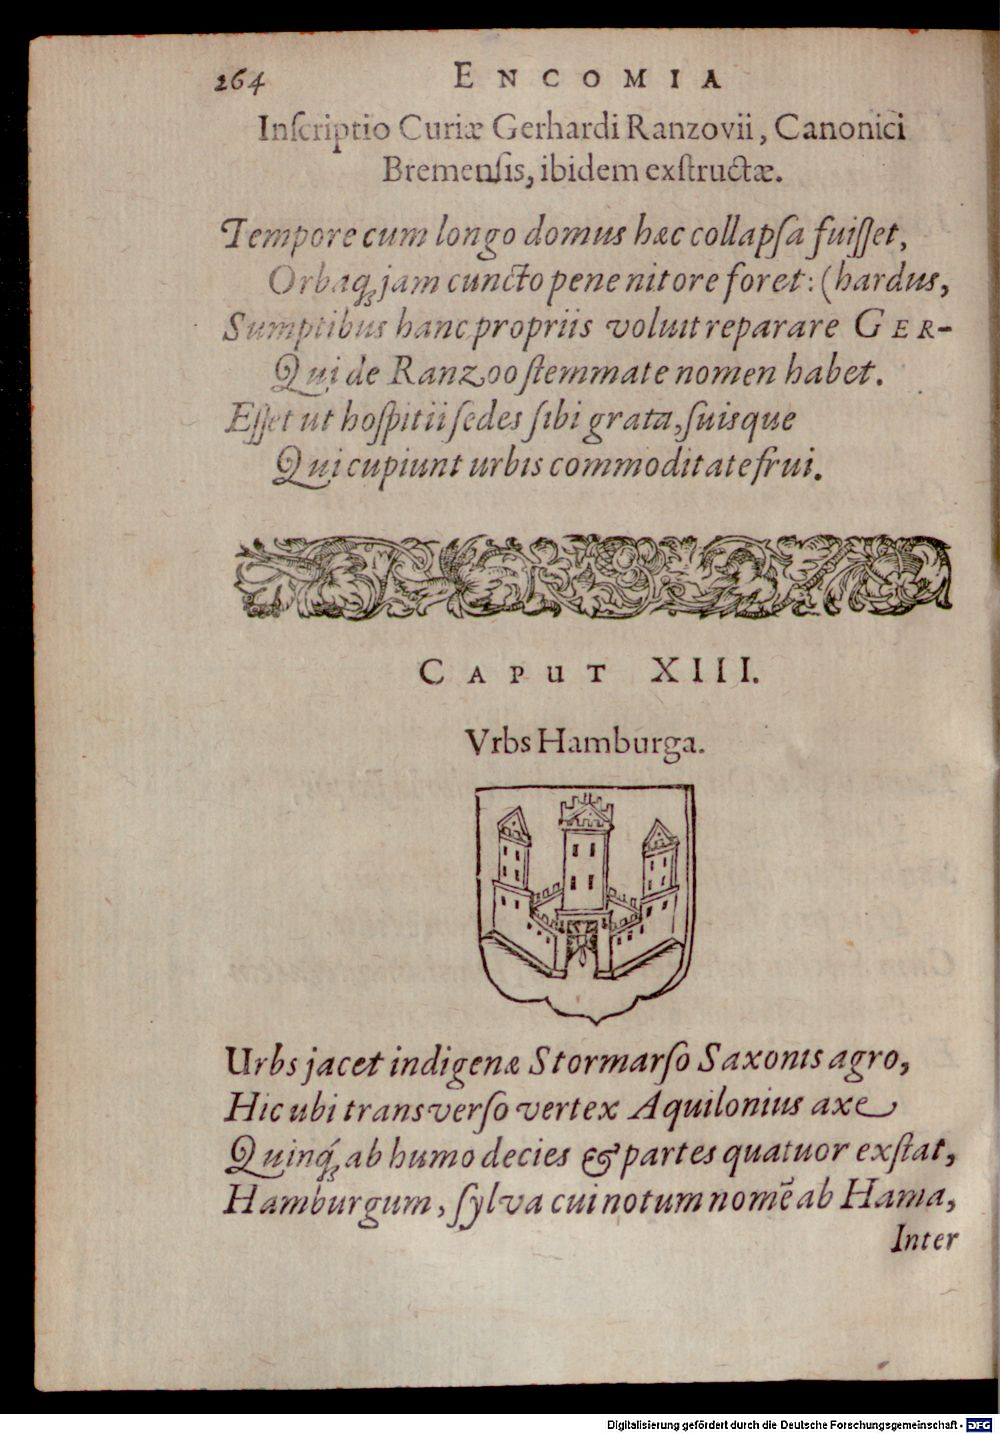 264 ENCOMIA
Inſcriptio Curiæ Gerhardi Ranzovii, Canonici
Bremenſis, ibidem exſtructæ.
Tempore cum longo domus hæc collapſa fuiſſet,
Orbaq; jam cuncto pene nitore foret: (hardus,
Sumptibus hanc propriis voluit reparare GER-
Qui de Ranzoo ſtemmate nomen habet.
Eſſet ut hoſpitii ſedes ſibi grata, ſuisque
Qui cupiunt urbis commoditate frui.
CAPUT XIII.
Vrbs Hamburga.
Urbs jacet indigenæ Stormarſo Saxonis agro,
Hic ubi transverſo vertex Aquilonius axe
Quinq́; ab humo decies & partes quatuor exſtat,
Hamburgum, ſylva cui notum nomē ab Hama,
Inter
Digitalisierung gefördert durch die Deutsche Forschungsgemeinschaft - DFG